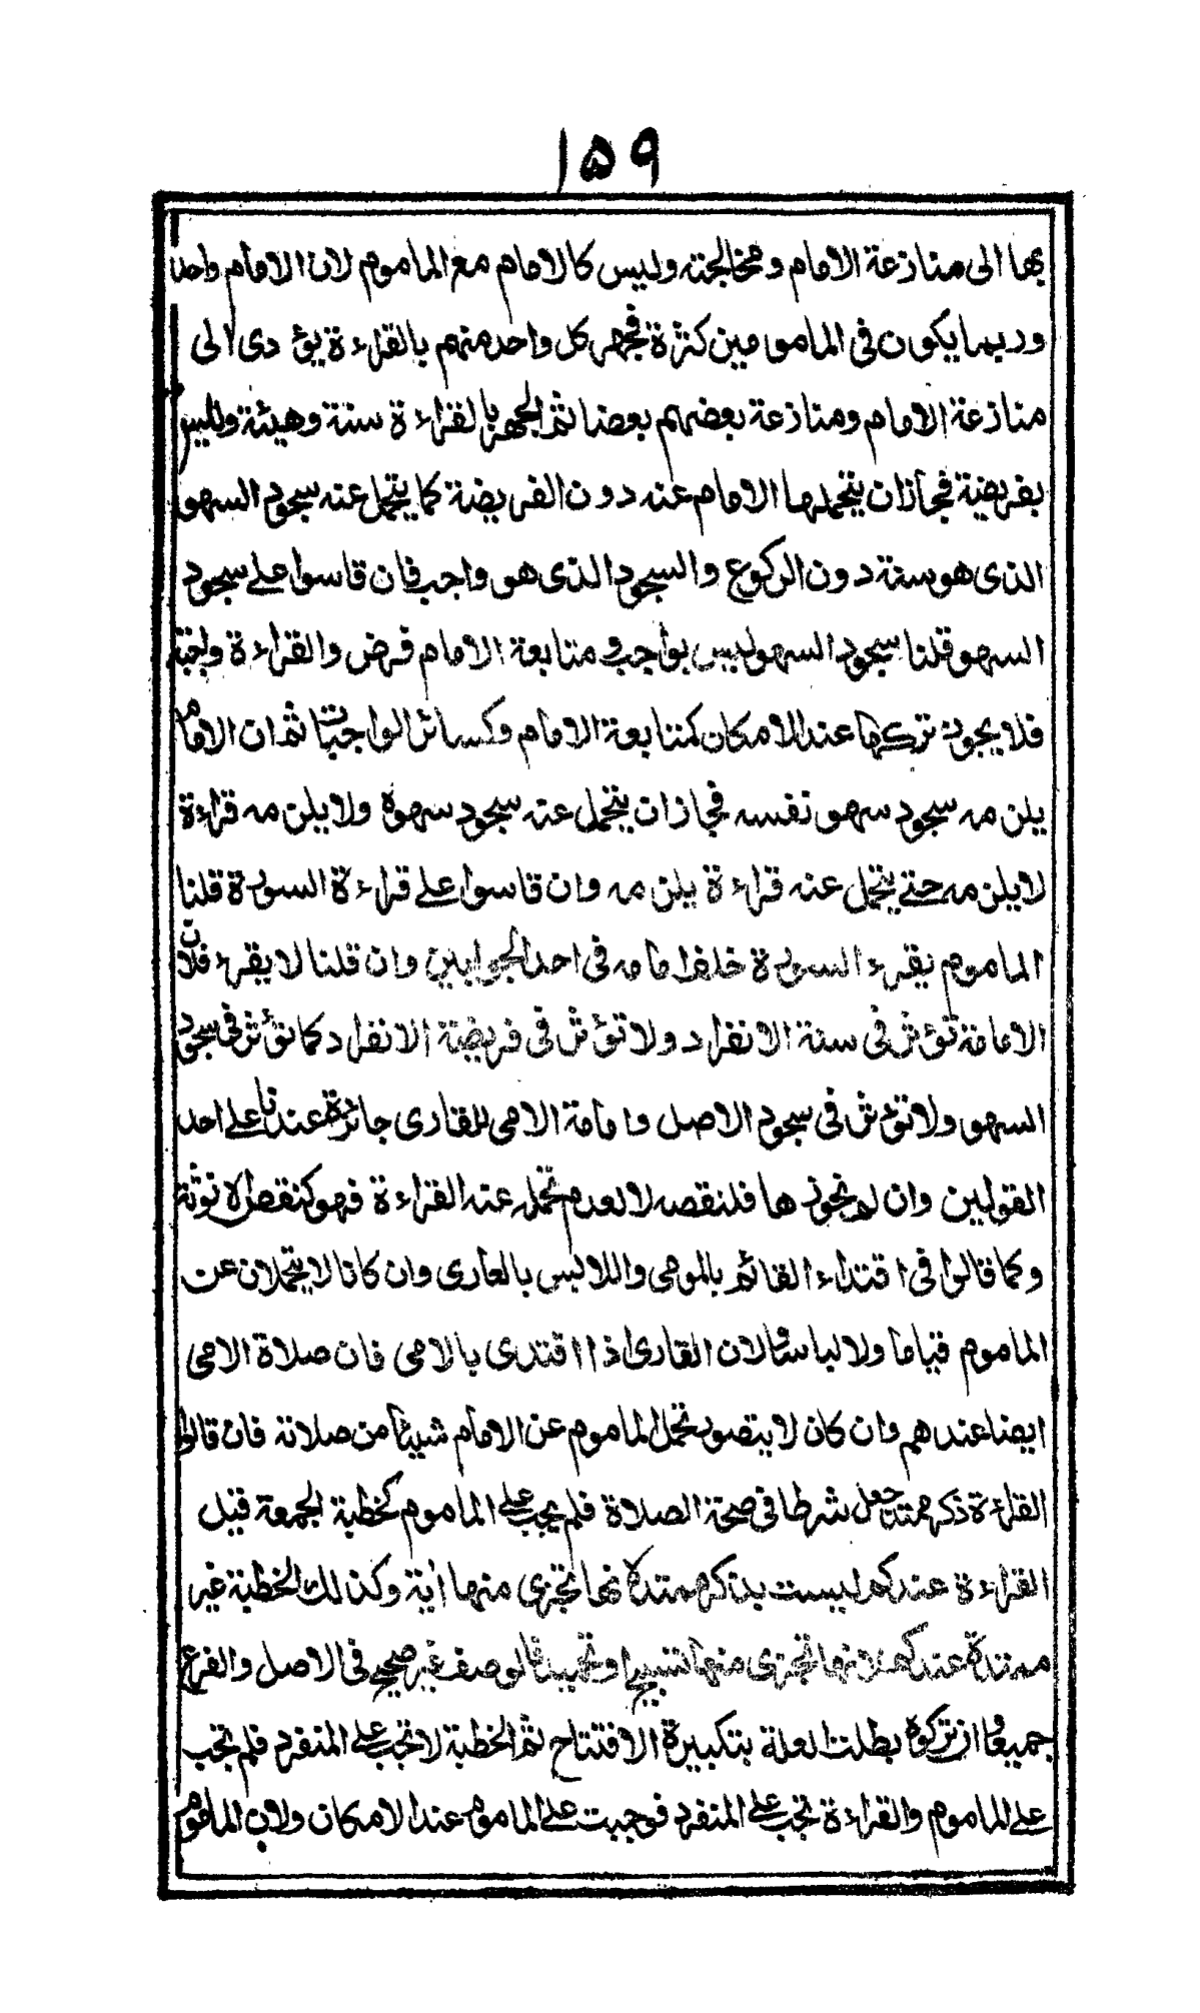 ١٥٩
بها الى منازعة الامام ومخالجته وليس كالامام مع الماموم لان الامام واحد
وربما يكون فى المامومين كثرة فجهر كل واحد منهم بالقراءة يؤدى الى
منازعة الامام ومنازعة بعضهم بعضا ثم الجهر بالقراءة سنة وهيئة وليس
بفريضة فجاز ان يتحملها الامام عنه دون الفريضة كما يتحمل عنه سجود السهو
الذى هو سنة دون الركوع والسجود الذى هو واجب فان قاسوا على سجود
السهو قلنا سجود السهو ليس بواجب ومتابعة الامام فرض والقراءة واجبة
فلا يجوز تركها عند الامكان كمتابعة الامام وكسائر الواجبات ثم ان الامام
يلزمه سجود سهو نفسه فجاز ان يتحمل عنه سجود سهوه ولا يلزمه قراءة
لا يلزمه حتى يتحمل عنه قراءة يلزمه وان قاسوا على قراءة السورة قلنا
الماموم يقرء السورة خلف امامه فى احد الجوابين وان قلنا لا يقرء فلان
الامامة تؤثر فى سنة الانفراد ولا تؤثر فى فريضة الانفراد كما تؤثر فى سجود
السهو ولا تؤثر فى سجود الاصل وامامة الامى للقارى جائزة عندنا على احد
القولين وان لم نجوزها فلنقصه لا لعدم تحمله عنه القراءة فهو كنقص الانوثة
وكما قالوا فى اقتداء القائم بالمومى واللابس بالعارى وان كانا لا يتحملان عن
الماموم قياما ولا لباسا ولان القارى اذا اقتدى بالامى فان صلاة الامى
ايضا عندهم وان كان لا يتصور تحمل الماموم عن الامام شيئا من صلاته فان قالوا
القراءة ذكر ممتد جعل شرطا فى صحة الصلاة فلم يجب على الماموم كخطبة الجمعة قيل
القراءة عندكم ليست بذكر ممتد لانها تجزى منها اية وكذلك الخطبة غير
ممتدة عندكم لانها تجزى منها تسبيح او تحميد فالوصف غير صحيح فى الاصل والفرع
جميعا وان تركوه بطلت العلة بتكبيرة الافتتاح ثم الخطبة لا تجب على المنفرد فلم تجب
على الماموم والقراءة تجب على المنفرد فوجبت على الماموم عند الامكان ولان الماموم